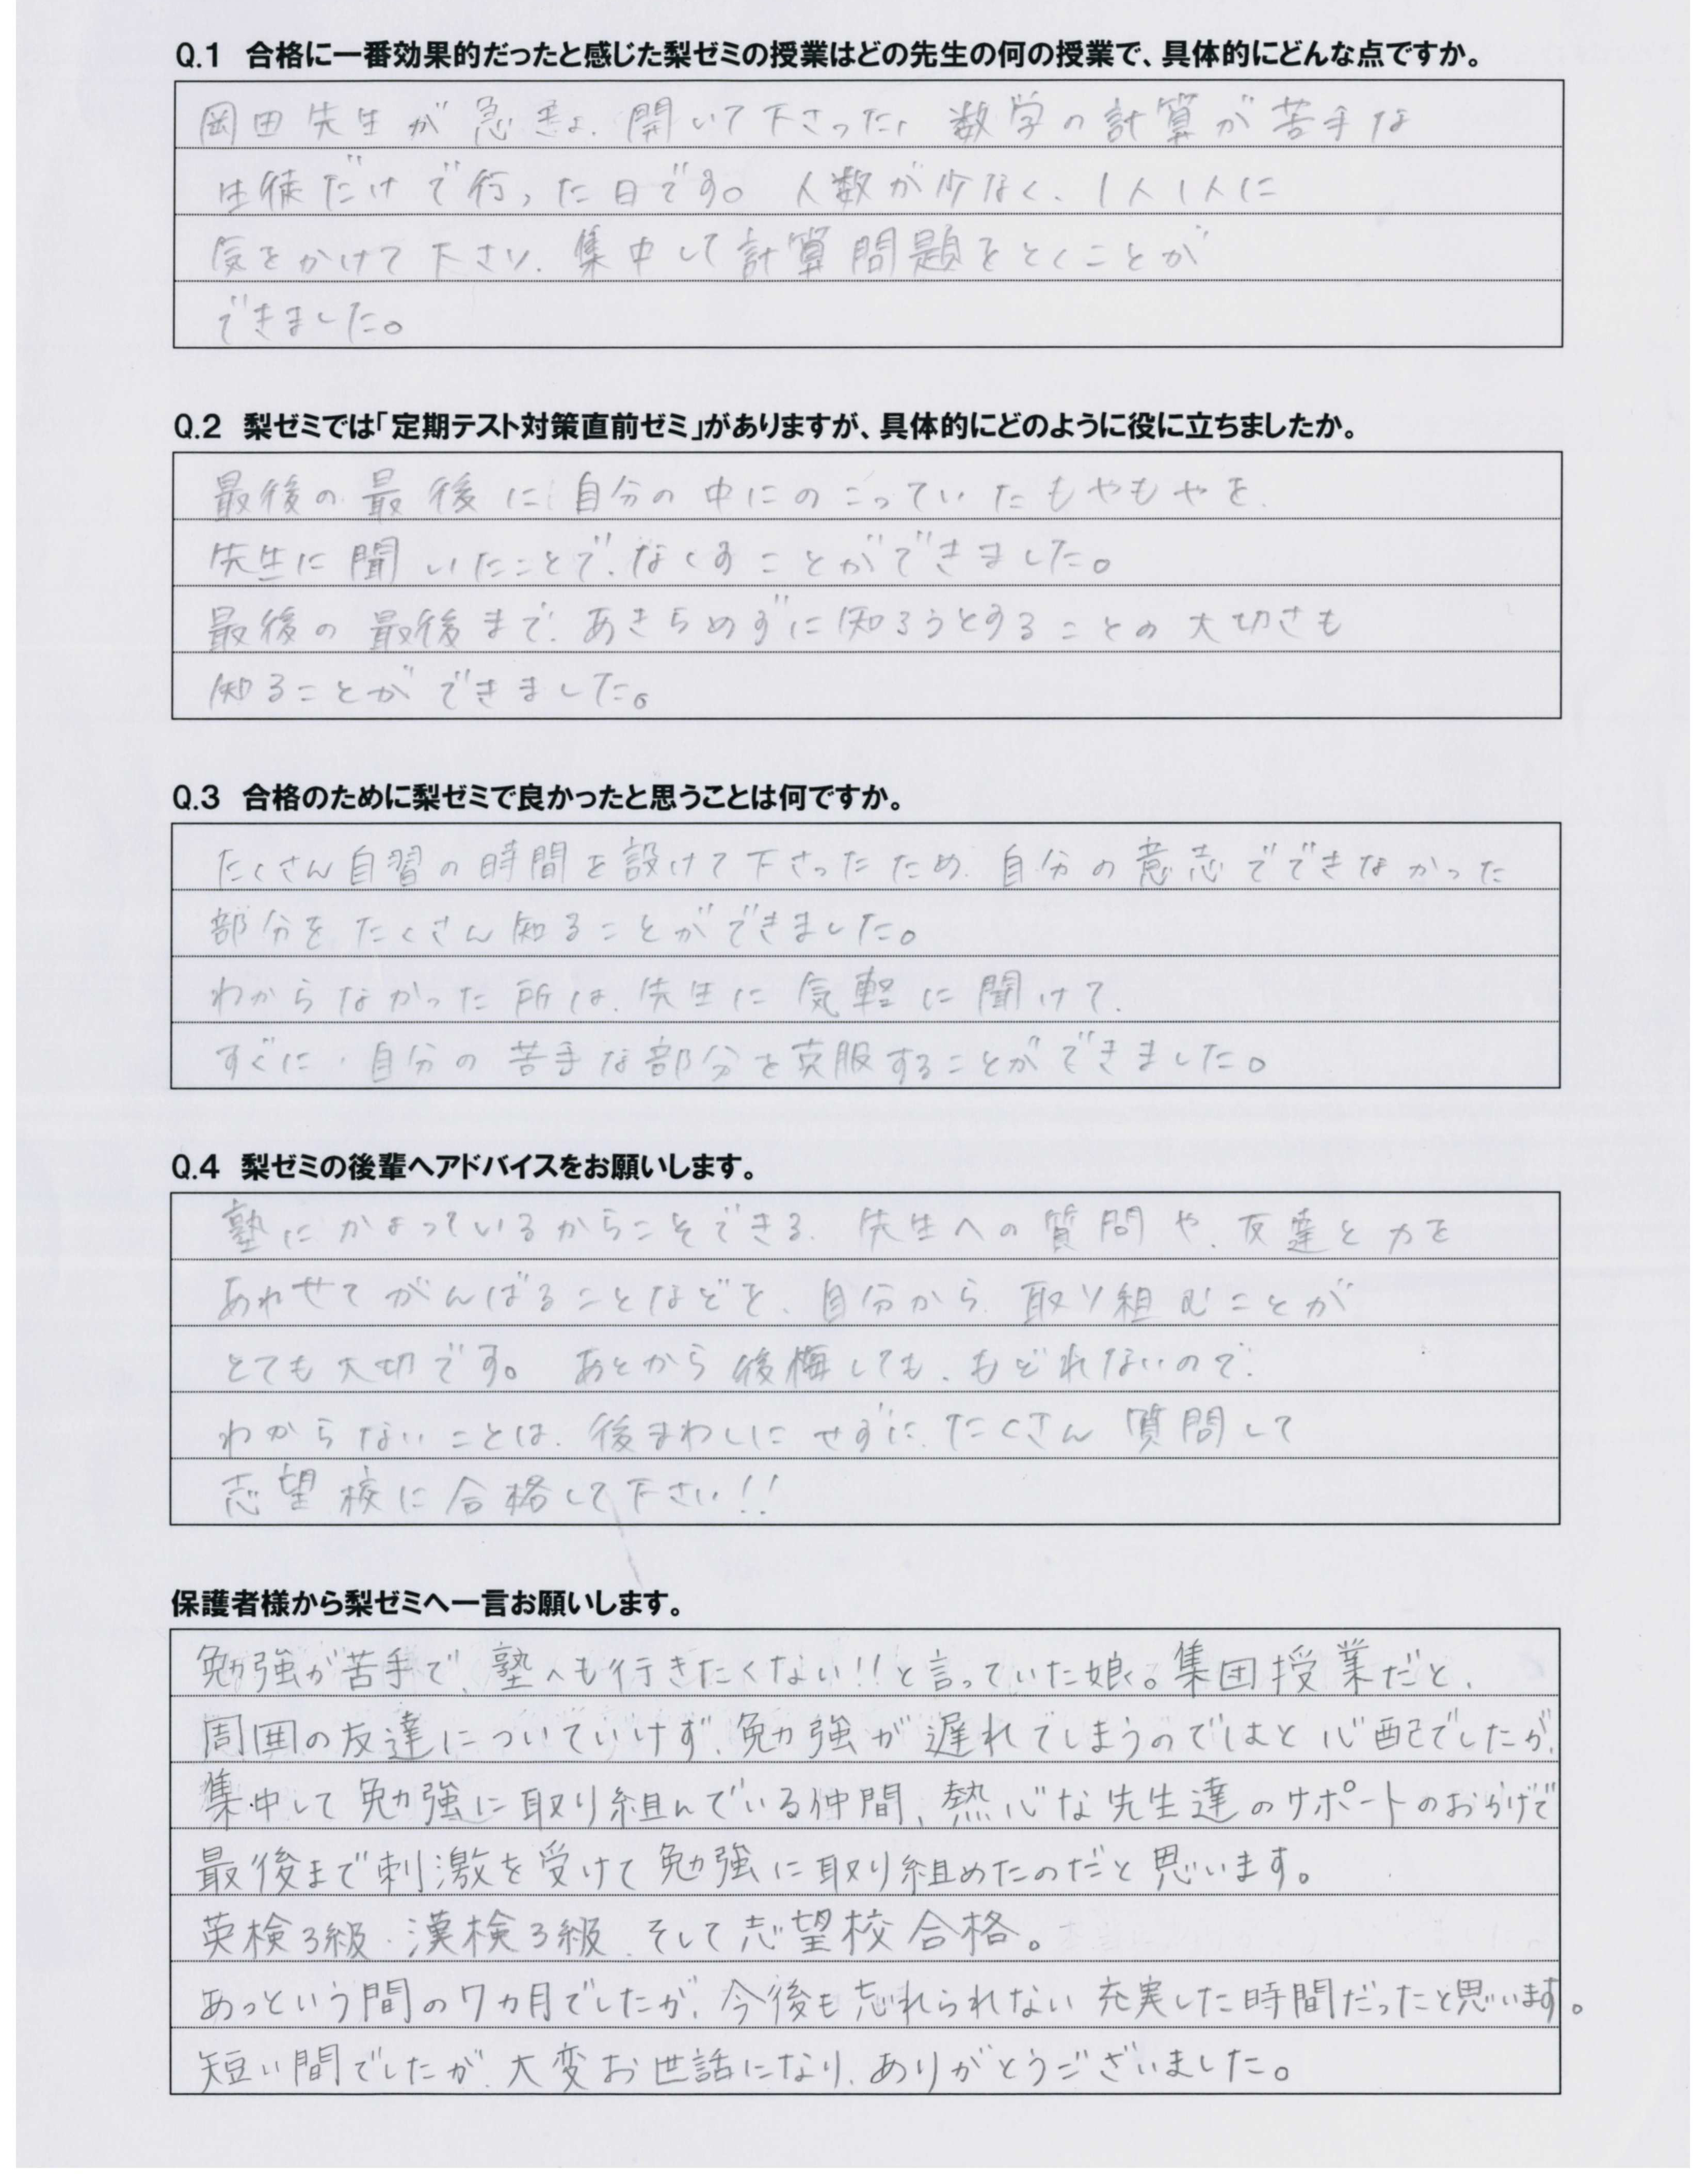 Q.1 合格に一番効果的だったと感じた梨ゼミの授業はどの先生の何の授業で、具体的にどんな点ですか。
岡田先生が急きょ、開いて下さった、数学の計算が苦手な
生徒だけで行った日です。人数が少なく、1人1人に
気をかけて下さり、集中して計算問題をとくことが
できました。
Q.2 梨ゼミでは「定期テスト対策直前ゼミ」がありますが、具体的にどのように役に立ちましたか。
最後の最後に自分の中にのこっていたもやもやを、
先生に聞いたことで、なくすことができました。
最後の最後まで、あきらめずに知ろうとすることの大切さも
知ることができました。
Q.3 合格のために梨ゼミで良かったと思うことは何ですか。
たくさん自習の時間を設けて下さったため、自分の意志でできなかった
部分をたくさん知ることができました。
わからなかった所は、先生に気軽に聞けて、
すぐに、自分の苦手な部分を克服することができました。
Q.4 梨ゼミの後輩へアドバイスをお願いします。
塾にかよっているからこそできる、先生への質問や、友達と力を
あわせてがんばることなどを、自分から、取り組むことが
とても大切です。あとから後悔しても、もどれないので、
わからないことは、後まわしにせずに、たくさん質問して
志望校に合格して下さい!!
保護者様から梨ゼミへ一言お願いします。
勉強が苦手で、塾へも行きたくない!!と言っていた娘。集団授業だと、
周囲の友達についていけず、勉強が遅れてしまうのではと心配でしたが、
集中して勉強に取り組んでいる仲間、熱心な先生達のサポートのおかげで
最後まで刺激を受けて勉強に取り組めたのだと思います。
英検3級、漢検3級、そして志望校合格。
あっという間の7カ月でしたが、今後も忘れられない充実した時間だったと思います。
短い間でしたが、大変お世話になり、ありがとうございました。